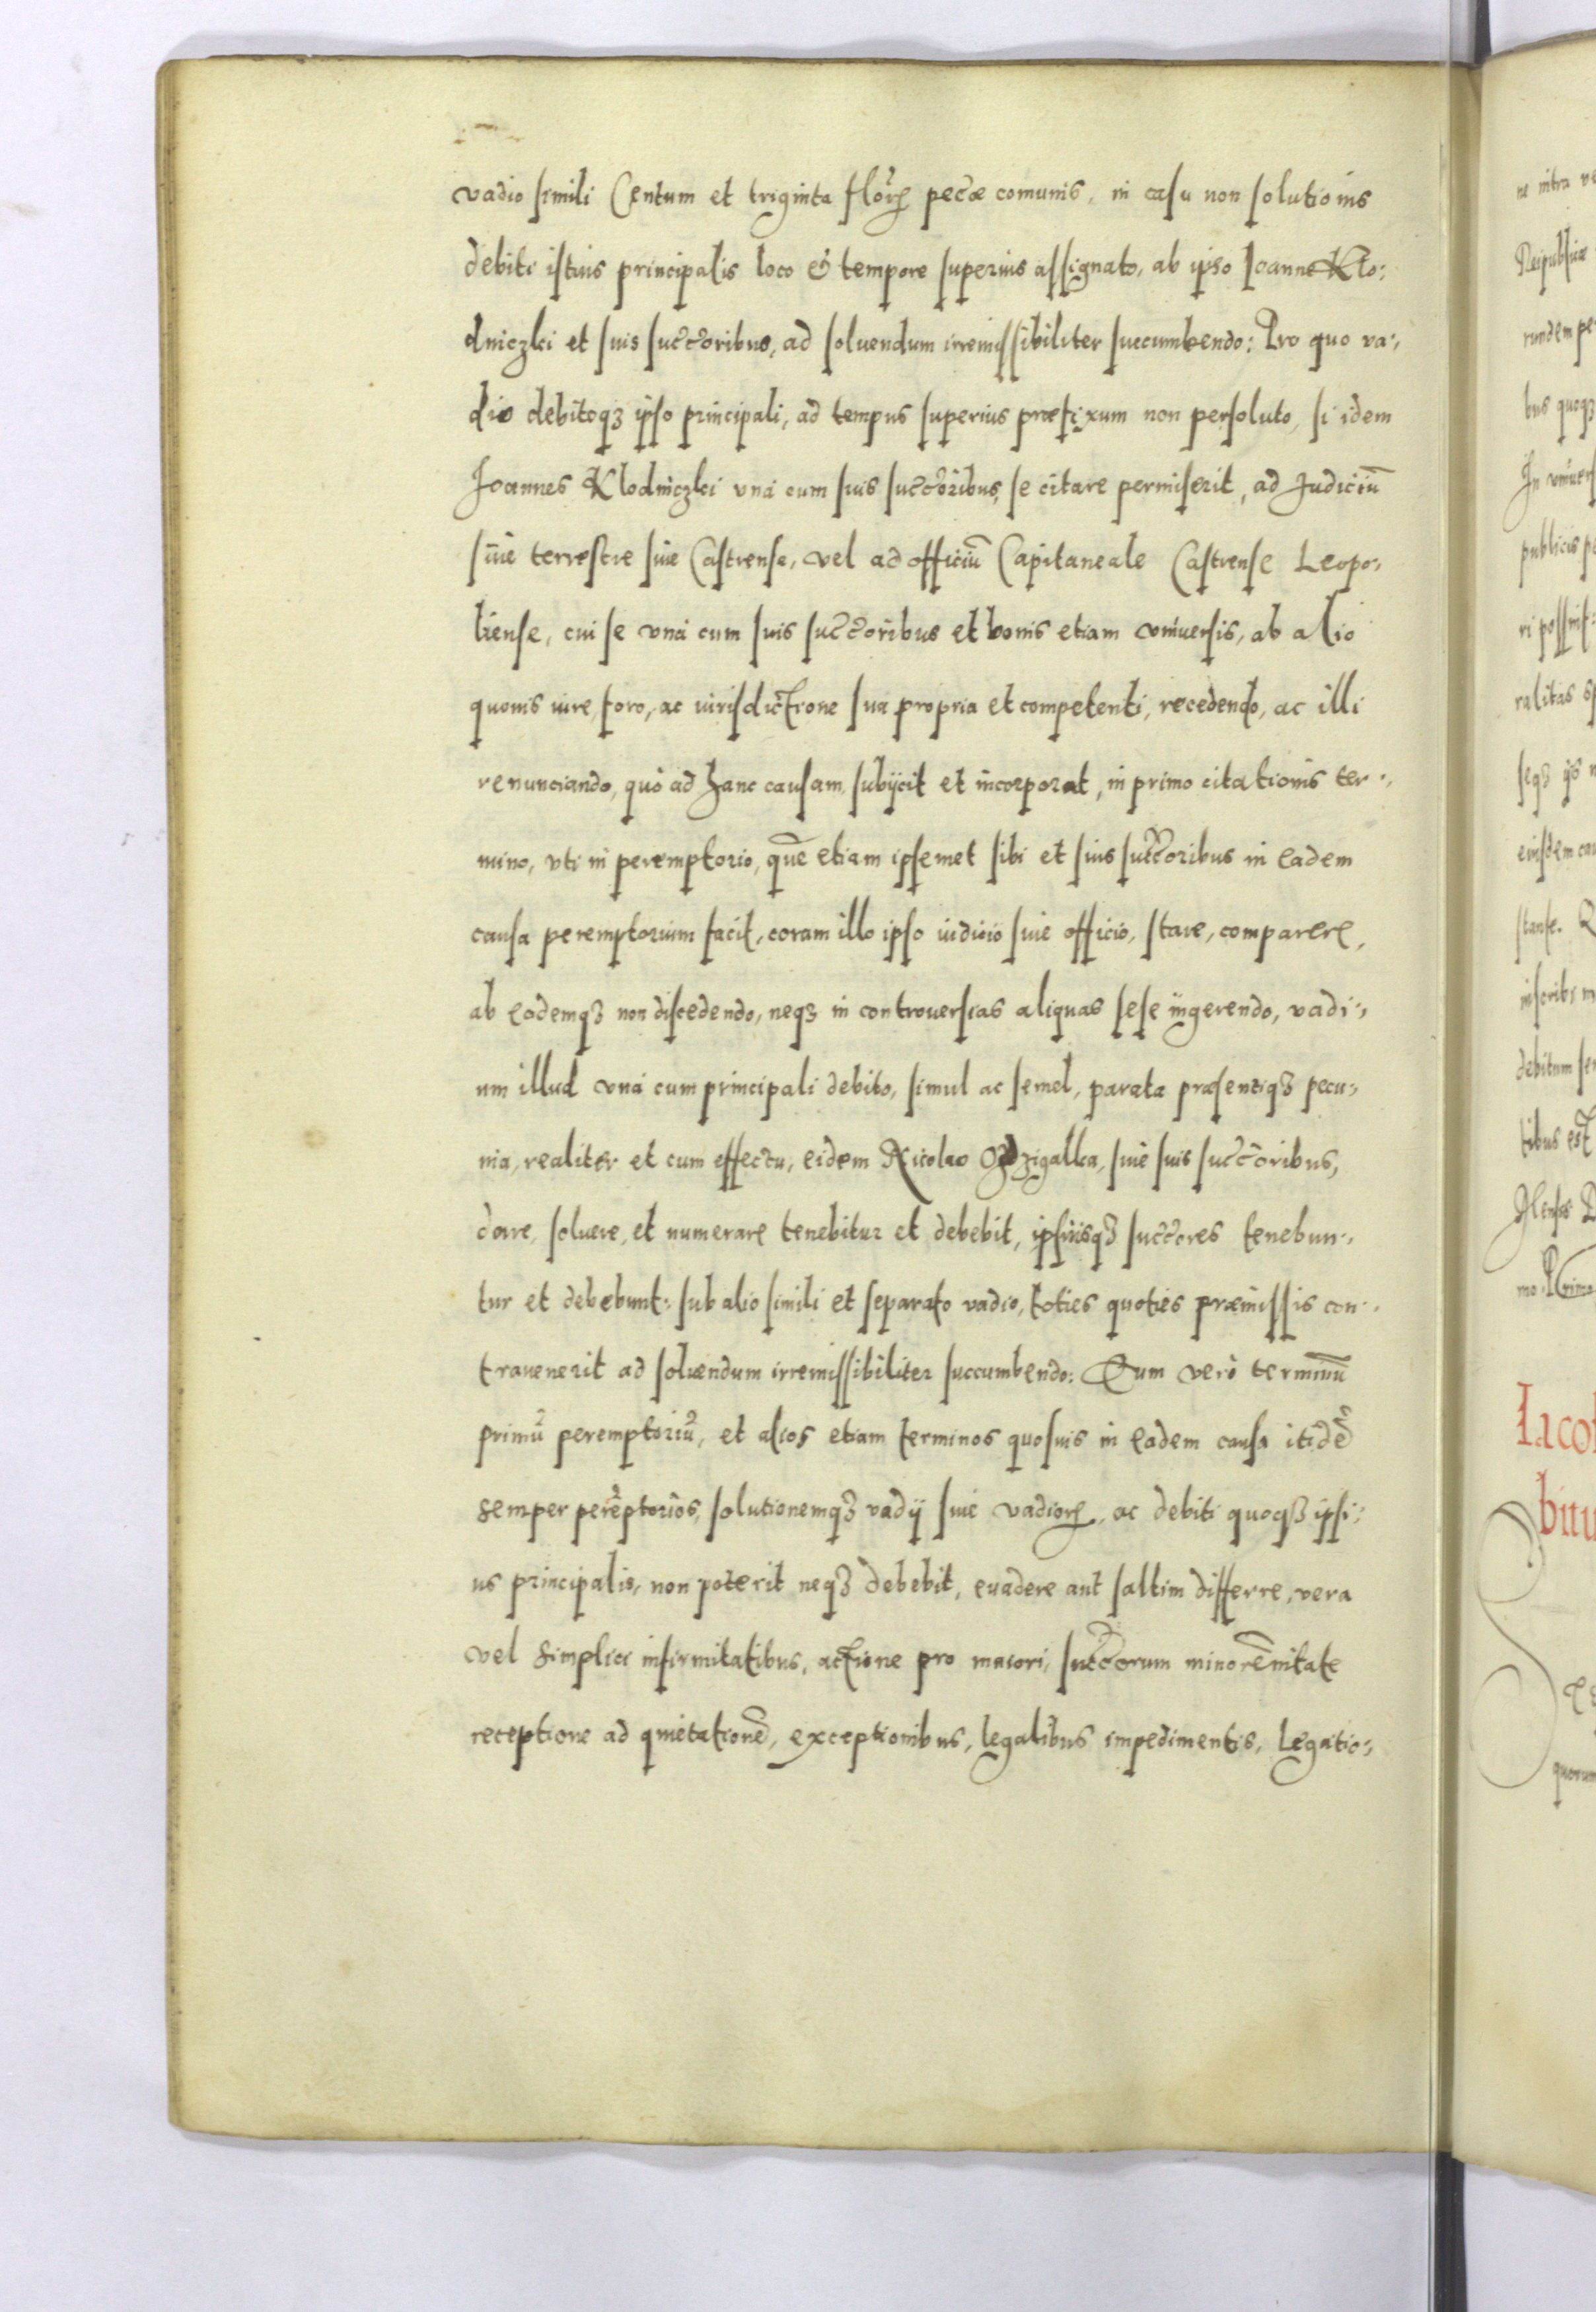 vadio simili Centum et triginta florꝝ pecæ comunis, in casu non solutionis
debiti istius principalis loco & tempore superius assignato, ab ipso Ioanne Klo:
dniczki et suis succōribus, ad soluendum irremissibiliter succumbendo: Pro quo va-,
dio debitoqȝ ipso principali, ad tempus superius præfixum non persoluto, si idem
Joannes Klodniczki vná cum suis succōribus, se citare permiserit, ad Judiciū
siue terrestre siue Castrense, vel ad officiū Capitaneale Castrense Leopo-,
liense, cui se vná cum suis succōribus et bonis etiam vniuersis, ab alio
quouis iure, foro, ac iurisdictione sua propria et competenti, recedendo, ac illi
renunciando, quò ad hanc causam, subijcit et incorporat, in primo citationis ter-,
mino, vti in peremptorio, quē etiam ipsemet sibi et suis succōribus in eadem
causa peremptorium facit, coram illo ipso iudicio siue officio, stare, comparere,
ab eodemqȝ non discedendo, neqȝ in controuersias aliquas sese ingerendo, vadi-,
um illud vná cum principali debito, simul ac semel, parata præsentiqȝ pecu-,
nia, realiter et cum effectu, eidem Nicolao Ozdzigalka, siue suis succōribus,
dare, soluere, et numerare tenebitur et debebit, ipsiusqȝ succōres tenebun-,
tur et debebunt: sub alio simili et separato vadio, toties quoties præmissis con-,
trauenerit ad soluendum irremissibiliter succumbendo: Eum verò terminū
primū peremptoriū, et alios etiam terminos quosuis in eadem causa itidē
semper perēptorios, solutionemqȝ vadij siue vadiorꝝ, ac debiti quoqȝ ipsi-,
us principalis, non poterit neqȝ debebit, euadere aut saltim differre, vera
vel simplici infirmitatibus, actione pro maiori, succōrum minorēnitate
receptione ad quietationē, exceptionibus, legalibus impedimentis, Legatio-,